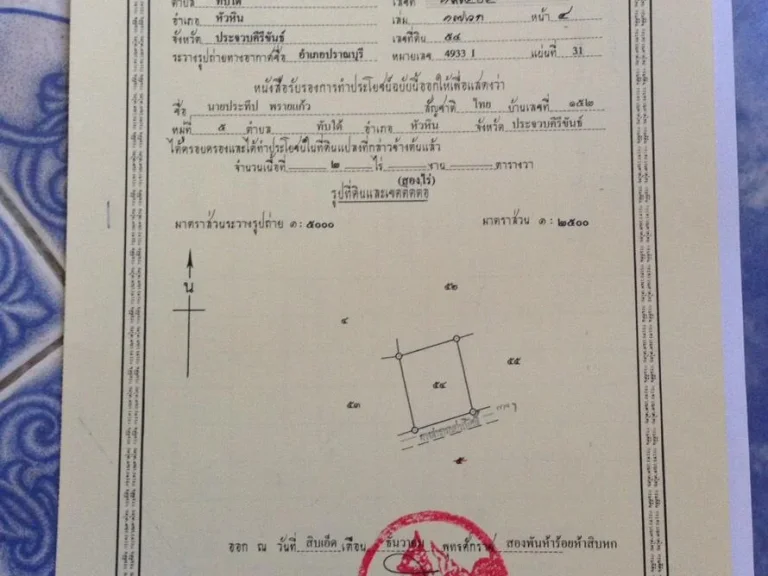 ตำบล ทับใต้ เลขที่
อำเภอ หัวหิน เล่ม ๑๗๖ก หน้า ๔
จังหวัด ประจวบคีรีขันธ์ เลขที่ดิน ๕๔
ระวางรูปถ่ายทางอากาศชื่อ อำเภอปราณบุรี หมายเลข 4933 I แผ่นที่ 31
หนังสือรับรองการทำประโยชน์ฉบับนี้ออกให้เพื่อแสดงว่า
ชื่อ นายประทีป พรายแก้ว สัญชาติ ไทย บ้านเลขที่ ๑๕๒
หมู่ที่ ๕ ตำบล ทับใต้ อำเภอ หัวหิน จังหวัด ประจวบคีรีขันธ์
ได้ครอบครองและได้ทำประโยชน์ในที่ดินแปลงที่กล่าวข้างต้นแล้ว
จำนวนเนื้อที่ ๒ ไร่ งาน ตารางวา
(สองไร่)
รูปที่ดินและเขตติดต่อ
มาตราส่วนระวางรูปถ่าย ๑ : ๕๐๐๐ มาตราส่วน ๑ : ๒๕๐๐
น
๕๒
๔
๕๕
๕๔
๕๓
ออก ณ วันที่ สิบเอ็ด เดือน ธันวาคม พุทธศักราช สองพันห้าร้อยห้าสิบหก